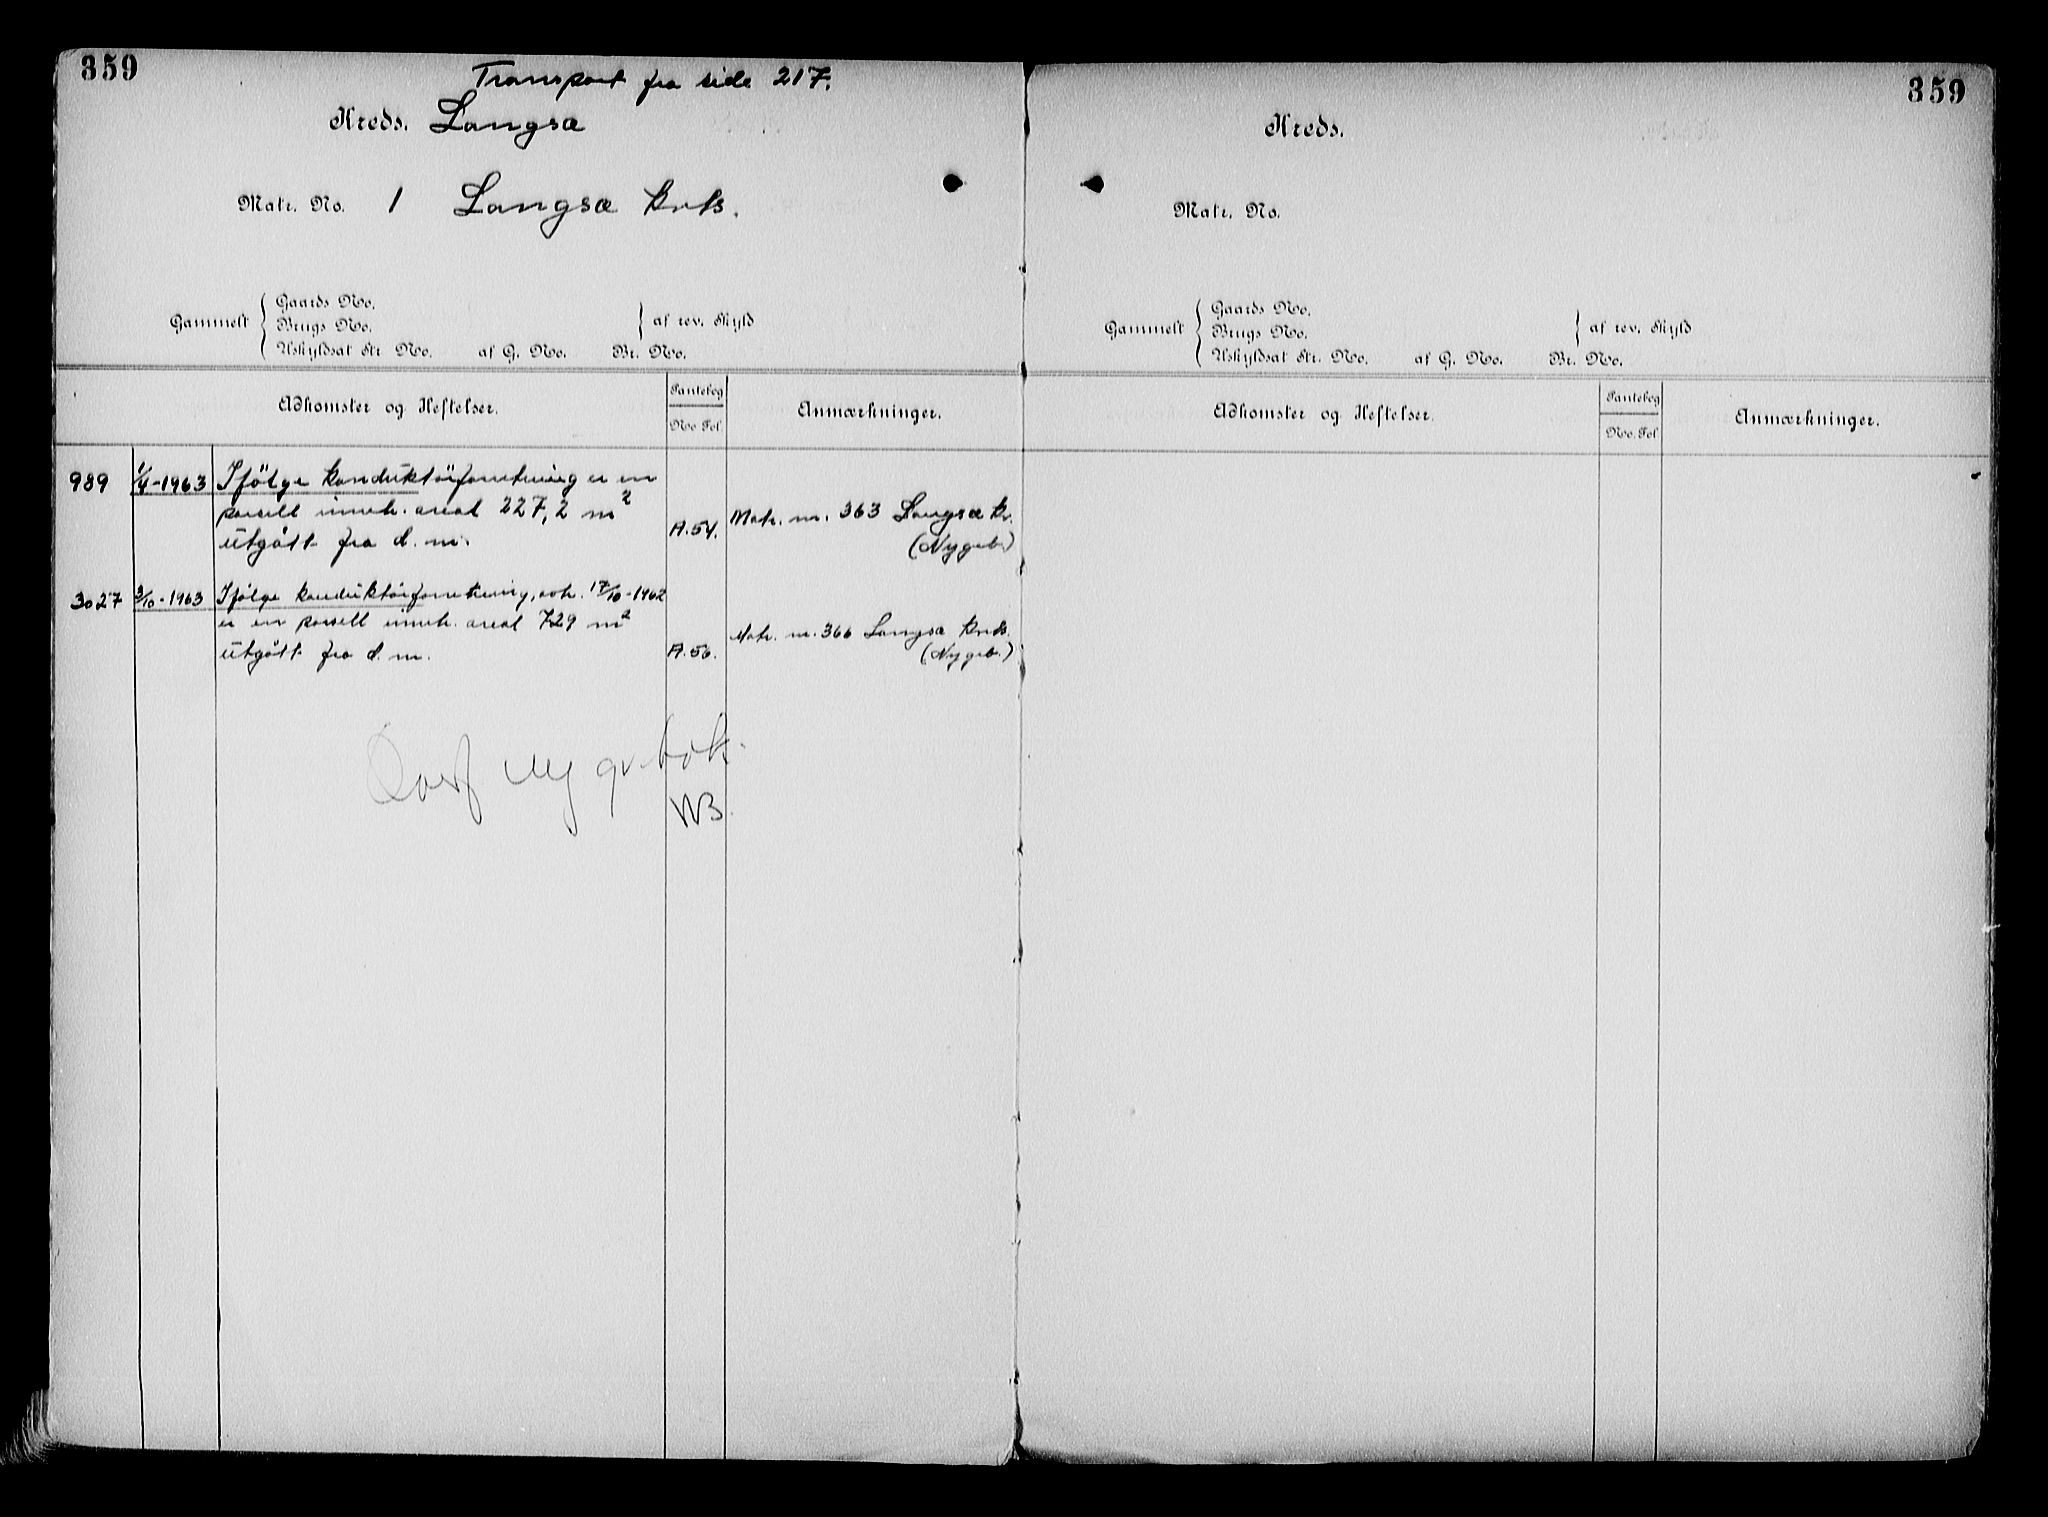 359
Transport fra side 217.
Kreds. Langsæ
Matr. No. 1 Langsæ krets.
Gammelt
Gaards No.
Brugs No.
Uskyldsat Str No. af G. No. Br. No.
af rev. Skyld
Adkomster og Heftelser.
Pantebog
No Fol.
Anmærkninger.
989 1/4-1963 Ifølge konduktörforretning er en
parsell inneh. areal 227,2 m²
utgått fra d. m. A.54. Matr. nr. 363 Langsæ kr.
(Nygrb.)
3027 3/10-1963 Ifølge konduktørforretning, avh. 17/10-1962
er en parsell inneh. areal 729 m²
utgått fra d. m. A.56. Matr. nr. 366 Langsæ krets.
(Nygrb.)
Ny gr.bok.
NB.
359
Kreds.
Matr. No.
Gammelt
Gaards No.
Brugs No.
Uskyldsat Str. No. af G. No. Br. No.
af rev. Skyld
Adkomster og Heftelser.
Pantebog
No. Fol.
Anmærkninger.